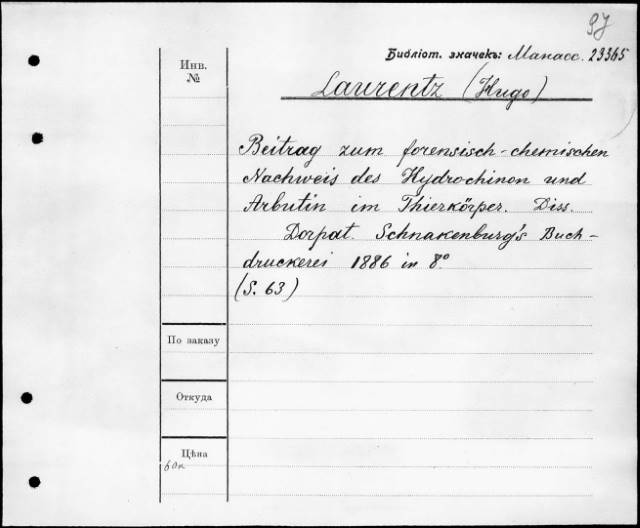 97
Библіот. значекъ: Манасс. 23365
Инв.
№
Laurentz (Hugo)
Beitrag zum forensisch-chemischen
Nachweis des Hydrochinon und
Arbutin im Thierkörper. Diss.
Dorpat. Schnakenburg's Buch-
druckerei 1886 in 8°
(S. 63)
По заказу
Откуда
Цѣна
60к